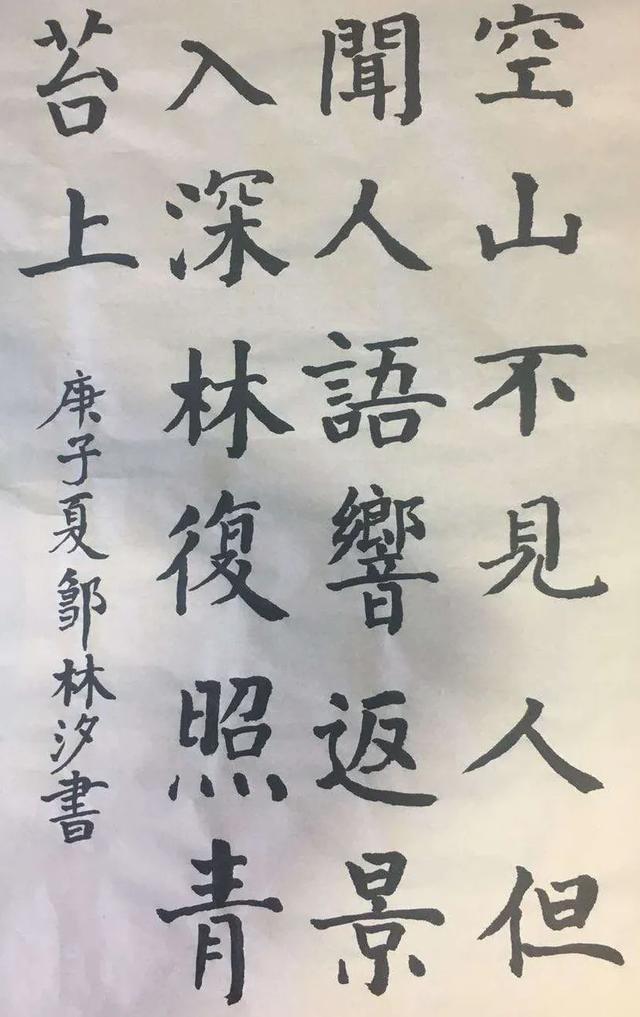 空山不見人但
聞人語響返景
入深林復照青
苔上
庚子夏鄒林汐書